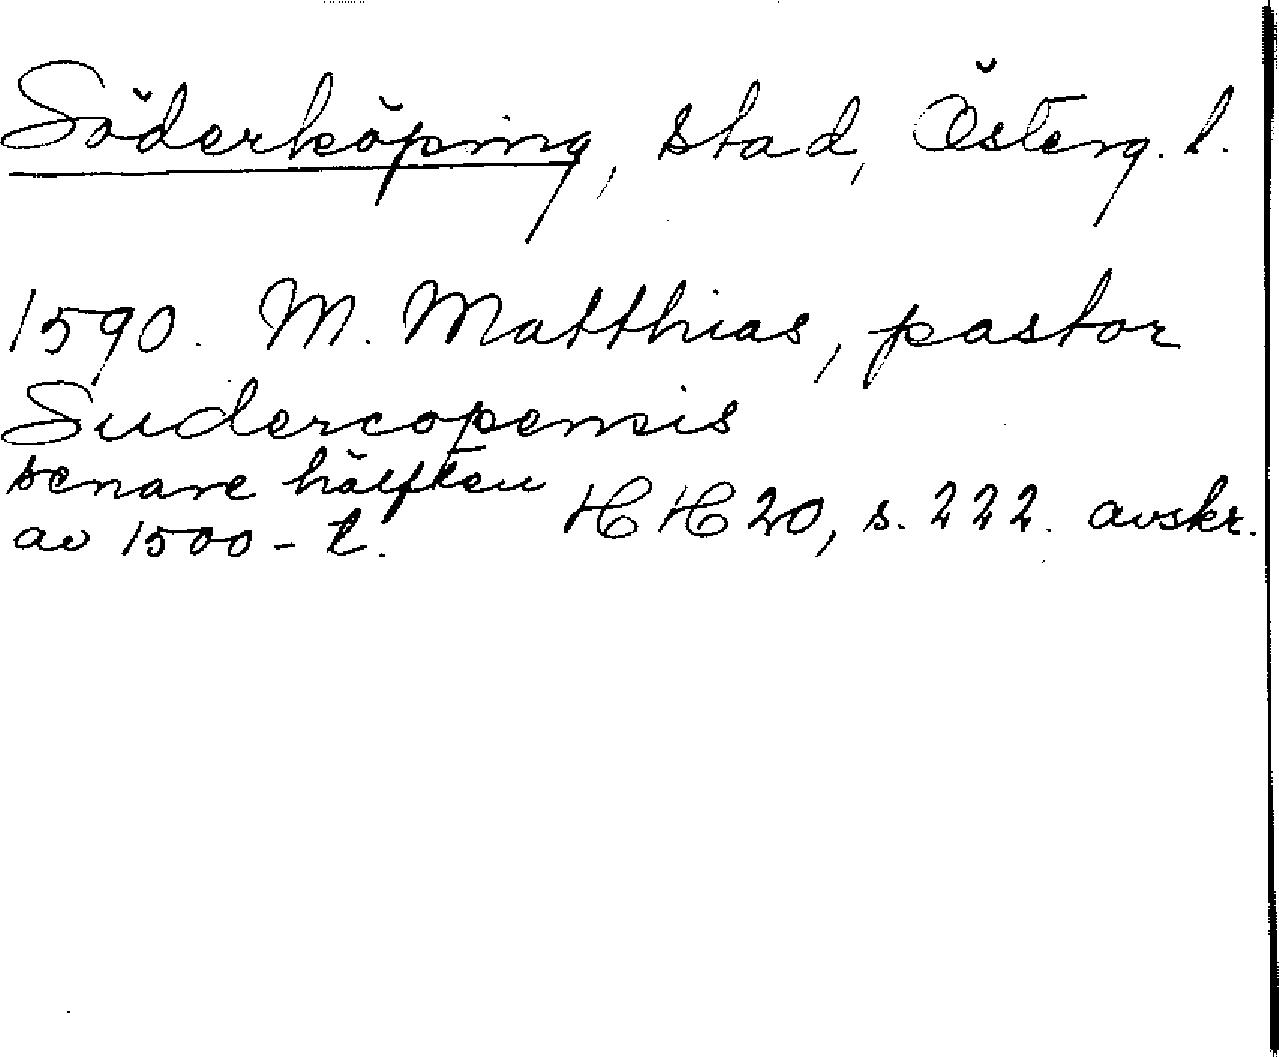 Söderköping, stad, Österg. l.
1590. M. Matthias, pastor
Sudercopensis
senare hälften
av 1500-t.
HH 20, s. 222. avskr.